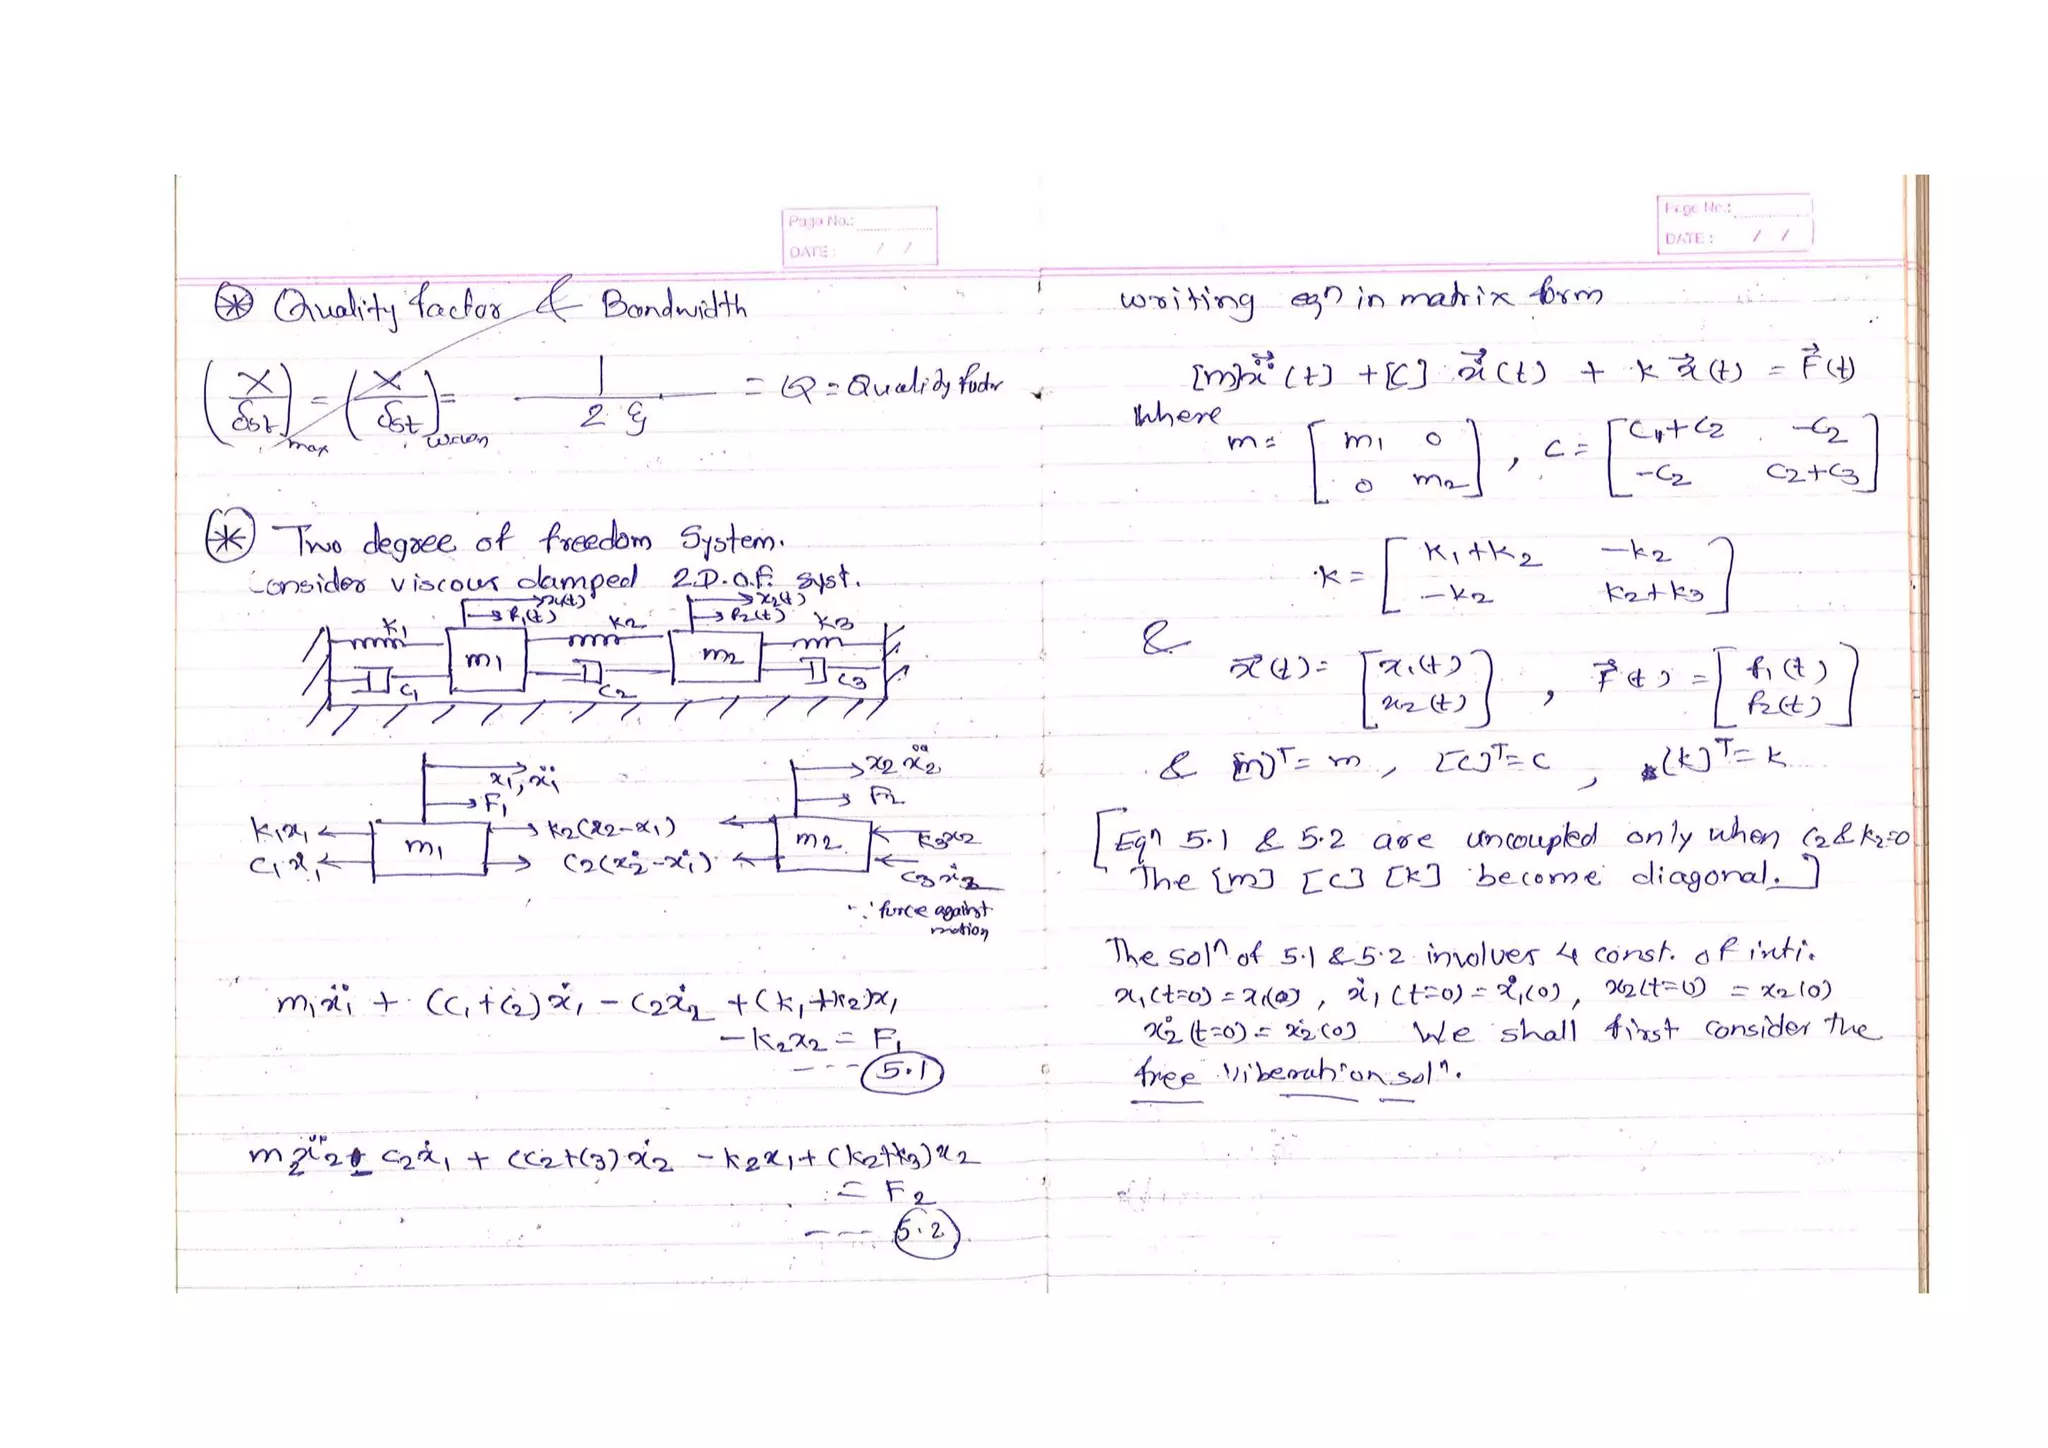 Page No.:
DATE: / /
⊛ Quality factor & Bandwidth
(X/δst)max = (X/δst)ω=ωn = 1/2ξ = Q = Quality factor
⊛ Two degree of freedom System.
Consider viscous damped 2.D.O.F. syst.
x1(t) x2(t)
k1 F1(t) k2 F2(t) k3
m1 m2
c1 c2 c3
x1, ẍ1 x2 ẍ2
F1 F2
k1x1 m1 k2(x2-x1) m2 k3x2
c1ẋ1 c2(ẋ2-ẋ1) c3ẋ2
∵ force against
motion
m1ẍ1 + (c1+c2)ẋ1 - c2ẋ2 + (k1+k2)x1
-k2x2 = F1
--- 5.1
m2ẍ2 - c2ẋ1 + (c2+c3)ẋ2 - k2x1 + (k2+k3)x2
= F2
--- 5.2
Page No.:
DATE: / /
writing eqn in matrix form
[m]ẍ(t) + [C] ẋ(t) + k x(t) = F(t)
where
m = [m1 0 , C = [c1+c2 -c2
0 m2] -c2 c2+c3]
k = [k1+k2 -k2
-k2 k2+k3]
&
x(t) = [x1(t) , F(t) = [f1(t)
x2(t)] F2(t)]
& [m]T = m , [c]T = c , [k]T = k
[Eqn 5.1 & 5.2 are uncoupled only when c2 & k2=0
The [m] [C] [k] become diagonal.]
The soln of 5.1 & 5.2 involves 4 const. of inti.
x1(t=0) = x1(0) , ẋ1(t=0) = ẋ1(0) , x2(t=0) = x2(0)
ẋ2(t=0) = ẋ2(0) We shall first consider the
free viberation soln.